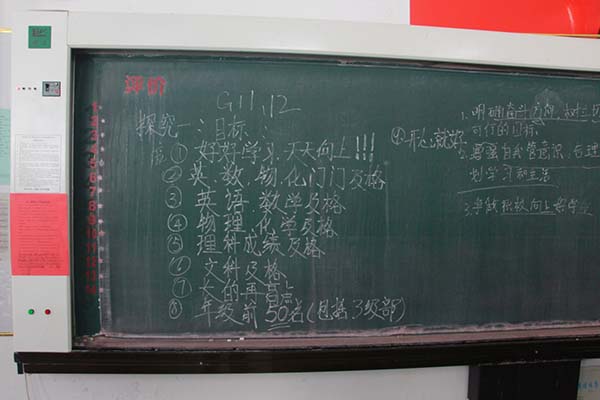 评价
G11.12
探究一:目标
① 好好学习,天天向上!!!
② 英、数、物、化门门及格
③ 英语.数学及格
④ 物理.化学及格
⑤ 理科成绩及格
⑥ 文科及格
⑦ 长的再高点
⑧ 年级前50名(包括3级部)
1
2
3
4
5
6
7
8
9
10
11
12
13
14
1.明确奋斗方向,树立切
可行的目标
2.要强自我管意识,合理
划学习和生活
3.争做积极向上